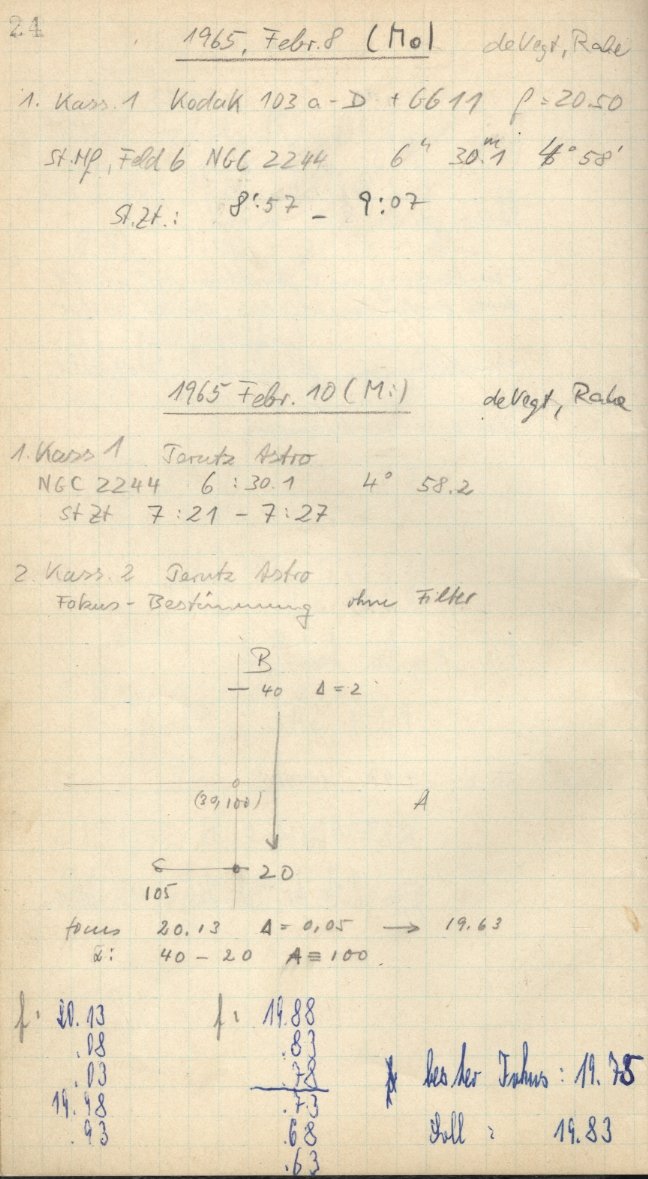 24
1965, Febr. 8 (Mo) de Vegt, Rahe
1. Kass. 1 Kodak 103 a-D + GG 11 f = 20.50
St.Mp, Feld 6 NGC 2244 6h 30m.1 4° 58'
St.Zt.: 8:57 – 9:07
1965 Febr. 10 (Mi) de Vegt, Rahe
1. Kass 1 Perutz Astro
NGC 2244 6:30.1 4° 58.2
St Zt 7:21 – 7:27
2. Kass. 2 Perutz Astro
Fokus-Bestimmung ohne Filter
B
40 Δ = 2
(39,100) A
20
105
focus 20.13 Δ = 0,05 → 19.63
40 – 20 A ≡ 100
f: 20.13 f: 19.88
.08 .83
.03 .78 bester Fokus: 19.75
19.98 .73
.93 .68 Soll : 19.83
.63